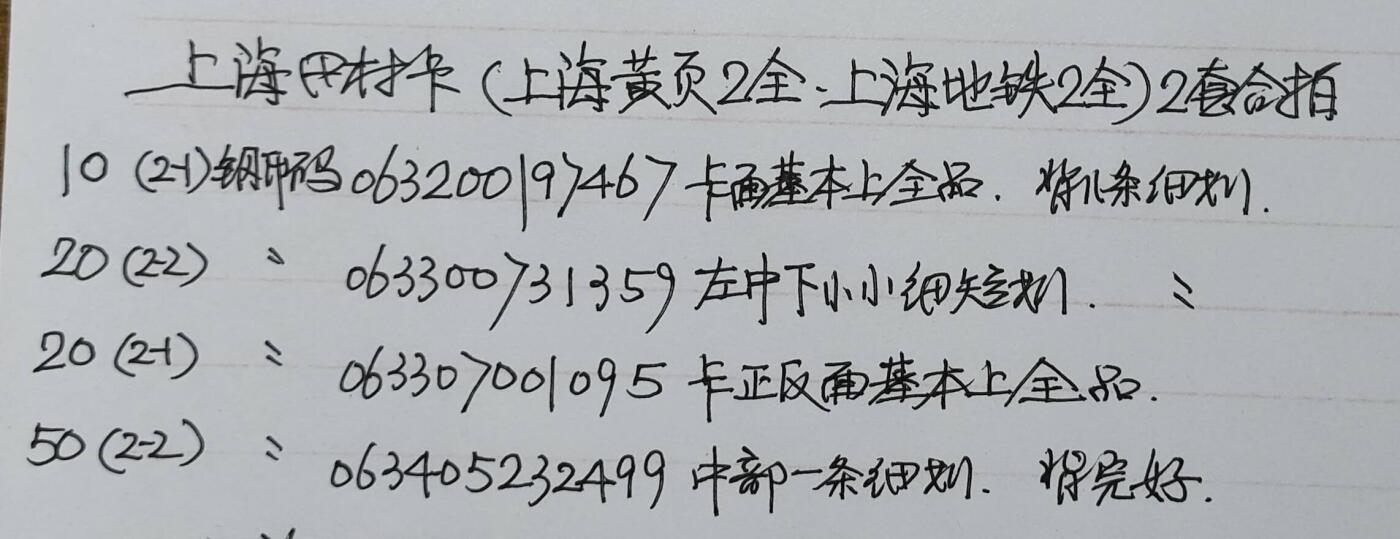 上海田村卡(上海黄页2全、上海地铁2全)2套合拍
10 (2-1) 钢印码 063200197467 卡面基本上全品. 背几条细划.
20 (2-2) 〃 063300731359 左中下小小细短划. 〃
20 (2-1) 〃 063307001095 卡正反面基本上全品.
50 (2-2) 〃 063405232499 中部一条细划. 背完好.